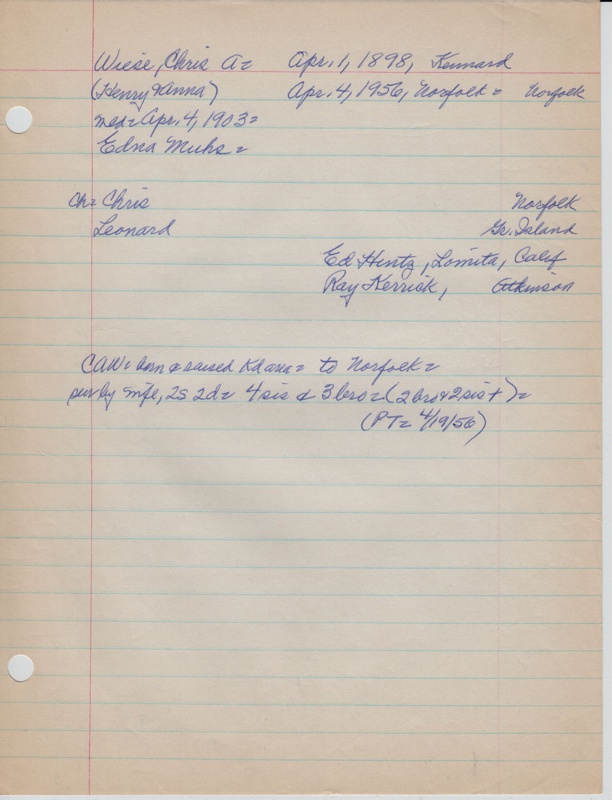 Wiese, Chris A= Apr. 1, 1898, Kennard
(Henry & Anna) Apr. 4, 1956, Norfolk = Norfolk
med= Apr. 4, 1903=
Edna Muhs =
ch= Chris Norfolk
Leonard Gr. Island
Ed Hintz, Lomita, Calif
Ray Kerrick, Atkinson
CAW= born & raised K area= to Norfolk=
sur by wife, 2s 2d= 4 sis & 3 bro=(2 bro & 2 sis +)=
(PT= 4/19/56)